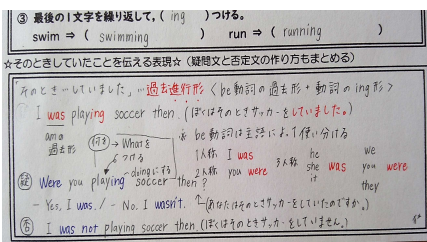 ③ 最後の1文字を繰り返して,( ing )つける。
swim ⇒ ( swimming ) run ⇒ ( running )
☆そのときしていたことを伝える表現☆(疑問文と否定文の作り方もまとめる)
「そのとき…していました」…過去進行形〈be動詞の過去形+動詞のing形〉
① I was playing soccer then.(ぼくはそのときサッカーをしていました。)
amの過去形
※ be動詞は主語によって使い分ける
何を → Whatをつける
~doingにする
1人称 I was
2人称 you were
3人称 he she it was
we you they were
疑 Were you playing soccer then?
- Yes, I was. / - No. I wasn't.
(あなたはそのときサッカーをしていたのですか。)
否 I was not playing soccer then.(ぼくはそのときサッカーをしていません。)